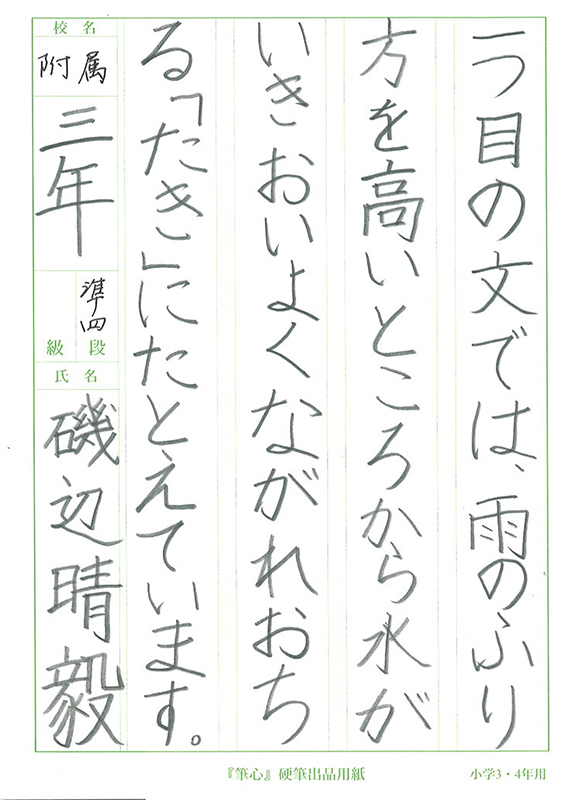 一つ目の文では、雨のふり
方を高いところから水が
いきおいよくながれおち
る「たき」にたとえています。
校名
附属
三年
準四
級 段
氏名
磯辺晴毅
『筆心』硬筆出品用紙
小学3・4年用